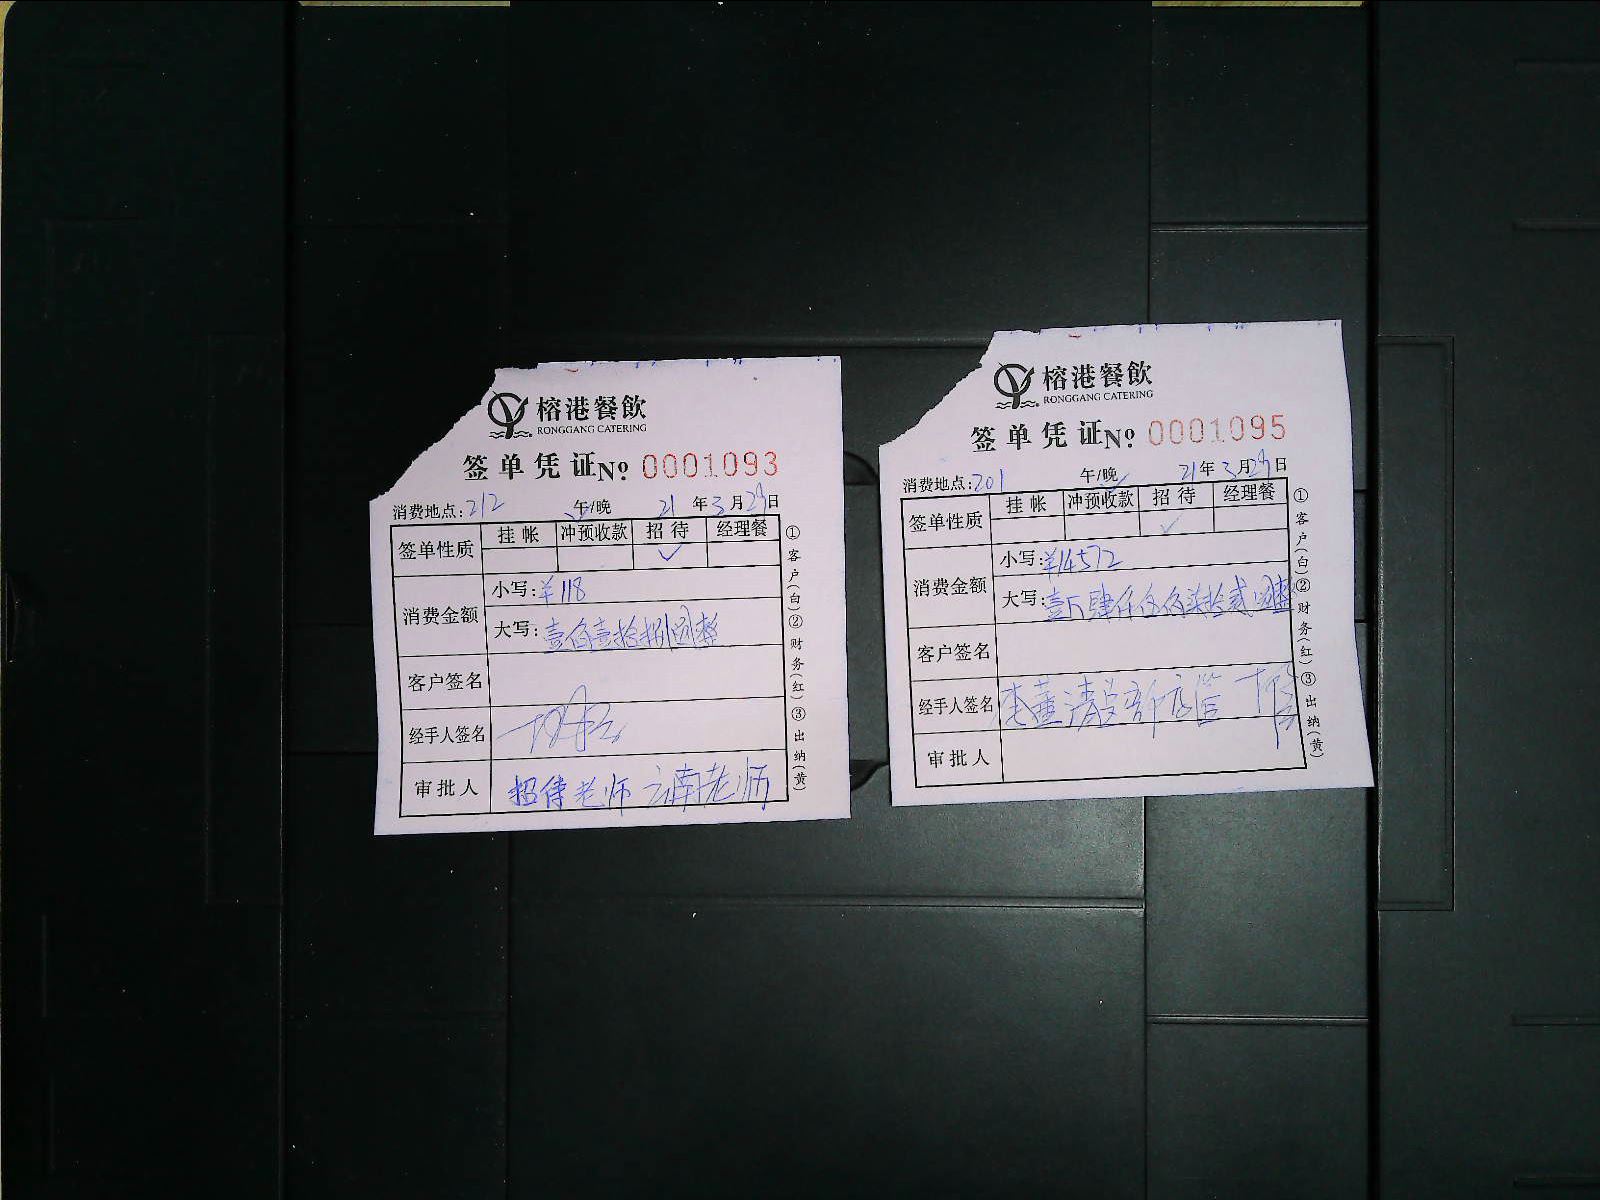 榕港餐飲
RONGGANG CATERING
签单凭证 No. 0001093
消费地点: 212 午/晚 21年3月29日
签单性质 挂帐 冲预收款 招待 经理餐
✓
消费金额 小写: ¥118
大写: 壹佰壹拾捌圆整
客户签名
经手人签名
审批人 招待老师 云南老师
①客户(白)②财务(红)③出纳(黄)
榕港餐飲
RONGGANG CATERING
签单凭证 No. 0001095
消费地点: 201 午/晚 21年3月29日
签单性质 挂帐 冲预收款 招待 经理餐
✓
消费金额 小写: ¥14572
大写: 壹万肆仟伍佰柒拾贰圆整
客户签名
经手人签名
审批人
①客户(白)②财务(红)③出纳(黄)